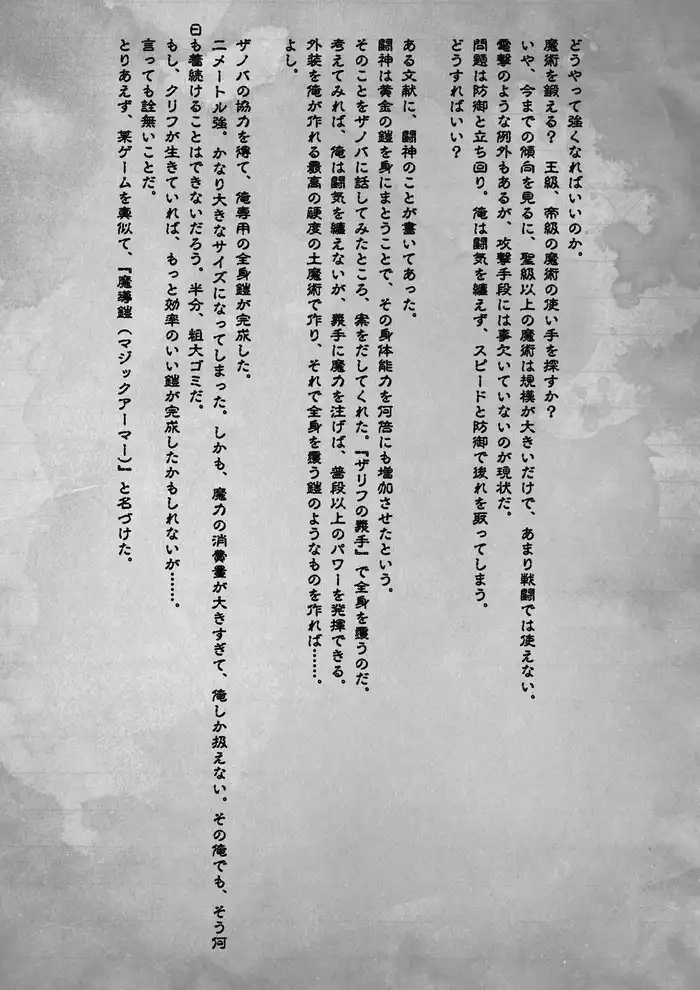 どうやって強くなればいいのか。
魔術を鍛える？　王級、帝級の魔術の使い手を探すか？
いや、今までの傾向を見るに、聖級以上の魔術は規模が大きいだけで、あまり戦闘では使えない。
電撃のような例外もあるが、攻撃手段には事欠いていないのが現状だ。
問題は防御と立ち回り。俺は闘気を纏えず、スピードと防御で後れを取ってしまう。
どうすればいい？
ある文献に、闘神のことが書いてあった。
闘神は黄金の鎧を身にまとうことで、その身体能力を何倍にも増加させたという。
そのことをザノバに話してみたところ、案をだしてくれた。『ザリフの義手』で全身を覆うのだ。
考えてみれば、俺は闘気を纏えないが、義手に魔力を注げば、普段以上のパワーを発揮できる。
外装を俺が作れる最高の硬度の土魔術で作り、それで全身を覆う鎧のようなものを作れば……。
よし。
ザノバの協力を得て、俺専用の全身鎧が完成した。
二メートル強。かなり大きなサイズになってしまった。しかも、魔力の消費量が大きすぎて、俺しか扱えない。その俺でも、そう何
日も着続けることはできないだろう。半分、粗大ゴミだ。
もし、クリフが生きていれば、もっと効率のいい鎧が完成したかもしれないが……。
言っても詮無いことだ。
とりあえず、某ゲームを真似て、『魔導鎧（マジックアーマー）』と名づけた。